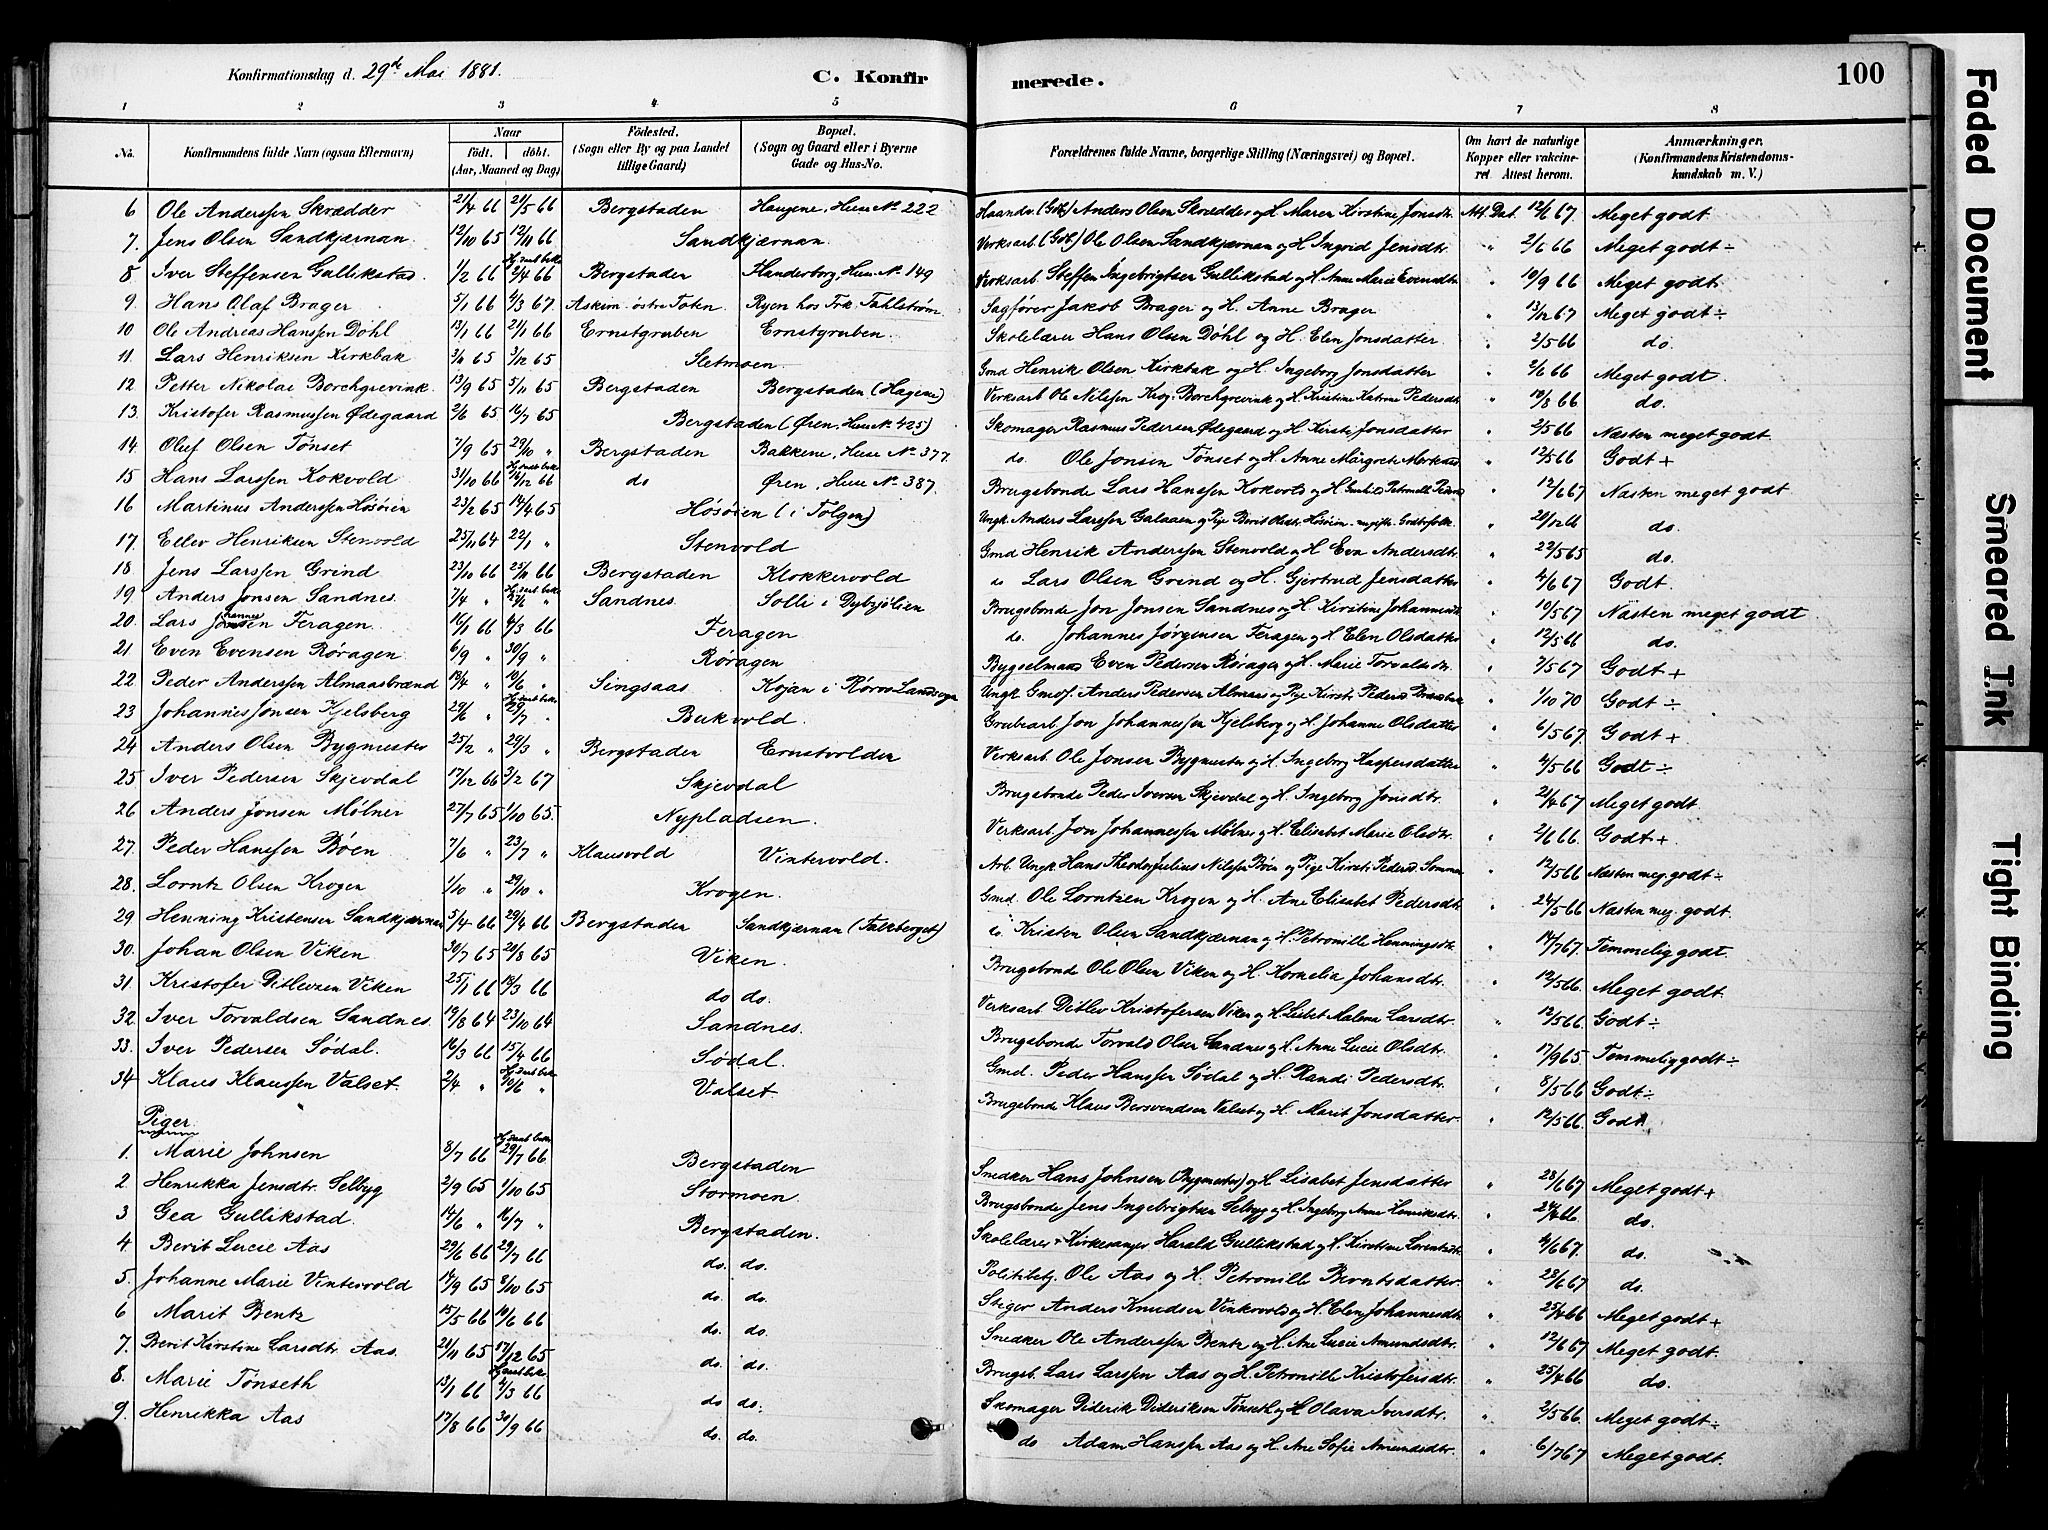 Konfirmationsdag d. 29de Mai 1881. C. Konfirmerede. 100
1 2 3 4 5 6 7 8
No. Konfirmandens fulde Navn (ogsaa Efternavn) Naar födt. döbt. (Aar, Maaned og Dag) Födested. (Sogn eller By og paa Landet tillige Gaard) Bopæl. (Sogn og Gaard eller i Byerne Gade og Hus-No. Forældrenes fulde Navne, borgerlige Stilling (Næringsvei) og Bopæl. Om havt de naturlige Kopper eller vakcineret. Attest herom. Anmærkninger. (Konfirmandens Kristendomskundskab m. V.)
6 Ole Anderssen Skrædder 21/4 66 21/5 66 Bergstaden Haugene, Huus No. 222 Haandv. (Gdb) Anders Olsen Skrædder og H. Maren Kirstine Jonsdtr. Att. Dat. 12/6 67 Meget godt
7. Jens Olsen Sandkjærnan. 12/10 65 12/11 66 Sandkjærnan Verksarb (Gdb) Ole Olsen Sandkjærnan og H. Ingrid Jensdtr. " 2/6 66 Meget godt ÷
8 Iver Steffensen Gullikstad. 1/2 66 Hj. døbt bekr. 2/4 66 Bergstaden Flanderborg, Huus No. 149 Verksarb. Steffen Ingebrigtsen Gullikstad og H. Anne Marie Evensdtr " 10/9 66 Meget godt
9. Hans Olaf Brager 5/1 66 4/3 67. Askim östre Toten Ryen hos Frk. Fahlstrøm Sagförer Jakob Brager og H. Anne Brager " 13/12 67 Meget godt ÷
10 Ole Andreas Hanssen Döhl 13/1 66 21/1 66 Ernstgruben Ernstgruben. Skolelærer Hans Olsen Döhl og H. Elen Jonsdatter " 2/5 66 do.
11. Lars Henriksen Kirkbak 3/6 65 3/12 65 Sletmoen Gmd Henrik Olsen Kirkbak og H. Ingeborg Jonsdatter " 2/6 66 Meget godt.
12 Petter Nikolai Borchgrevink. 13/9 65 5/11 65 Bergstaden Bergstaden (Hagene) Verksarb Ole Nilssen Kroj. Borchgrevink og H. Kristine Katrine Pedersdtr " 10/8 66 do.
13. Kristofer Rasmussen Ødegaard 2/6 65 16/7 65 Bergstaden (Øren, Huus No. 425) Skomager Rasmus Pedersen Ødegaard og H. Kirsti Jonsdatter " 2/5 66 Næsten meget godt.
14. Oluf Olsen Tönset 7/9 65 29/10 " Bergstaden Bakkene, Huus No. 377 do. Ole Jonsen Tönset og H. Anne Margrete " 12/5 66 Godt +
15 Hans Larssen Kokvold 31/10 66 Hj. døbt bekr. 16/12 66 do Øren, Huus No. 387. Brugsbonde Lars Hanssen Kokvold og H. Gunhild Petronelle " 12/6 67 Næsten meget godt
16 Martinus Anderssen Hösöien 23/2 65 14/4 65 Hösöien (i Tolgen) Ungk Anders Larssen Galaaen og Pige Berit " 20/12 66 do.
17. Ellev Henriksen Stenvold 25/11 64 22/1 " Stenvold Gmd Henrik Anderssen Stenvold og H. Eva Andersdtr. " 22/5 65 do.
18 Jens Larssen Grind 23/10 66 25/11 66 Bergstaden Klokkervold do Lars Olsen Grind og H. Gjertrud Jensdatter " 4/6 67 Godt.
19. Anders Jonsen Sandnes. 7/4 " Hj. døbt bekr. 2/6 " Sandnes. Solli i Dybsjölien Brugsbonde Jon Jonsen Sandnes og H. Kirstine Johannesdtr " 10/5 67 Næsten meget godt
20. Lars Johannessen Feragen. 16/1 66 4/3 66 Feragen do. Johannes Jörgensen Feragen og H. Elen Olsdatter " 12/5 66 do.
21 Even Evensen Röragen 6/9 " 30/9 " Röragen Bygselmand Even Pedersen Röragen og H. Marie Torvaldsdtr. " 7/5 67 Godt +
22. Peder Anderssen Almaasbrænd 18/4 " 10/6 " Singsaas Kojan i Röros Landsogn Ungk. Gmdss. Anders Pedersen Almaas og Pige Kirsti Pedersd " 1/10 70 Godt ÷
23 Johannes Jonsen Kjelsberg 29/6 " Hj. døbt bekr. 29/7 " Bukvold. Grubearb Jon Johannessen Kjelsberg og H. Johanne Olsdatter " 6/5 67. Godt +
24 Anders Olsen Bygmester 25/2 " 29/3 " Bergstaden Ernstvolden Verksarb. Ole Jonsen Bygmester og H. Ingeborg Kaspersdatter " 4/5 66 Godt ÷
25 Iver Pedersen Skjevdal 17/12 66 3/2 67 Skjevdal Brugsbonde Peder Iversen Skjevdal og H. Ingeborg Jonsdtr. " 21/4 67 Meget godt.
26 Anders Jonsen Mölner 27/7 65 1/10 65. Nypladsen. Verksarb. Jon Johannessen Mölner og H. Elisabet Marie Olsdtr. " 2/6 66. Godt +
27. Peder Hanssen Böen 7/6 " 23/7 " Klausvold Vintervold. Arb. Ungk Hans Theodor Julius Nilssen Böen og Pige Kirsti Pedersd " 12/5 66 Næsten meg. godt ÷
28. Lorntz Olsen Krogen 1/10 " 29/10 " Krogen. Gmd. Ole Lorntzen Krogen og H. Ane Elisabet Pedersdtr. " 24/5 66 Næsten meg. godt.
29 Henning Kristensen Sandkjærnan 5/4 66 29/4 66 Bergstaden Sandkjærnan (Falkberget) do. Kristen Olsen Sandkjærnan og H. Petronille Henningsdtr " 14/7 67. Temmelig godt.
30. Johan Olsen Viken 30/7 65 20/8 65 Viken. Brugsbonde Ole Olsen Viken og H. Kornelia Johansdtr. " 12/5 66. Meget godt.
31. Kristofer Ditlevsen Viken 25/1 66 18/3 66 do do. Verksarb Ditlev Kristofersen Viken og H. Lisbet Malena Larsdtr. " 12/5 66. Godt ÷
32. Iver Torvaldsen Sandnes. 19/8 64 23/10 64 Sandnes. Brugsbonde Torvald Olsen Sandnes og H. Anne Lucie Olsdtr. " 17/9 65 Temmelig godt ÷
33. Iver Pedersen Södal. 16/3 66 15/4 66 Södal. Gmd. Peder Hanssen Södal og H. Randi Pedersdtr. " 8/5 66 Godt ÷
34 Klaus Klaussen Valset. 2/4 " Hj. døbt bekr. 10/6 " Valset Brugsbonde Klaus Bersvendsen Valset og H. Marit Jonsdatter. " 12/5 66. Godt
Piger
1. Marie Johnsen 8/7 66 Hj. døbt bekr. 29/7 66 Bergstaden Snedker Hans Johnsen (Bygmester) og H. Lisabet Jensdatter " 28/6 67 Meget godt +
2 Henrikka Jensdtr. Selbyg 2/9 65 1/10 65 Stormoen. Brugsbonde Jens Ingebrigtsen Selbyg og H. Ingeborg Anne Henriksdtr. " 24/4 66. do.
3 Gea Gullikstad. 14/6 " 16/7 " Bergstaden. Skolelærer + Kirkesanger Harald Gullikstad og H. Kirstine Lorentsdtr. " 4/6 67. do.
4 Berit Lucie Aas 29/6 66 29/7 66 do. do. Politibetj. Ole Aas og H. Petronille Berntsdatter. " 23/6 67 do.
5. Johanne Marie Vintervold 14/9 65 8/10 65 do. do. Stiger Anders Knudsen Vintervold og H. Elen Johannesdtr " 25/4 66 Meget godt +
6 Marit Bentz 15/5 66 10/6 66 do. do. Snedker Ole Anderssen Bentz og H. Ane Lucie Amundsdtr. " 12/6 67 Meget godt.
7. Berit Kirstine Larsdtr. Aas. 21/11 65 17/12 65 do. do. Brugsb. Lars Larssen Aas og H. Petronille Kristofersdtr. " 25/4 66 do.
8. Marie Tönseth 13/1 66 Hj. døbt bekr. 4/3 66 do do. Skomager Diderik Dideriksen Tönset og H. Olava Iversdtr. " 2/5 66. Meget godt ÷
9. Henrikka Aas 17/8 66 30/9 66 do. do. do Adam Hanssen Aas og H. Ane Sofie Amundsdtr. " 6/7 67 Meget godt.
Faded Document
Smeared Ink
Tight Binding